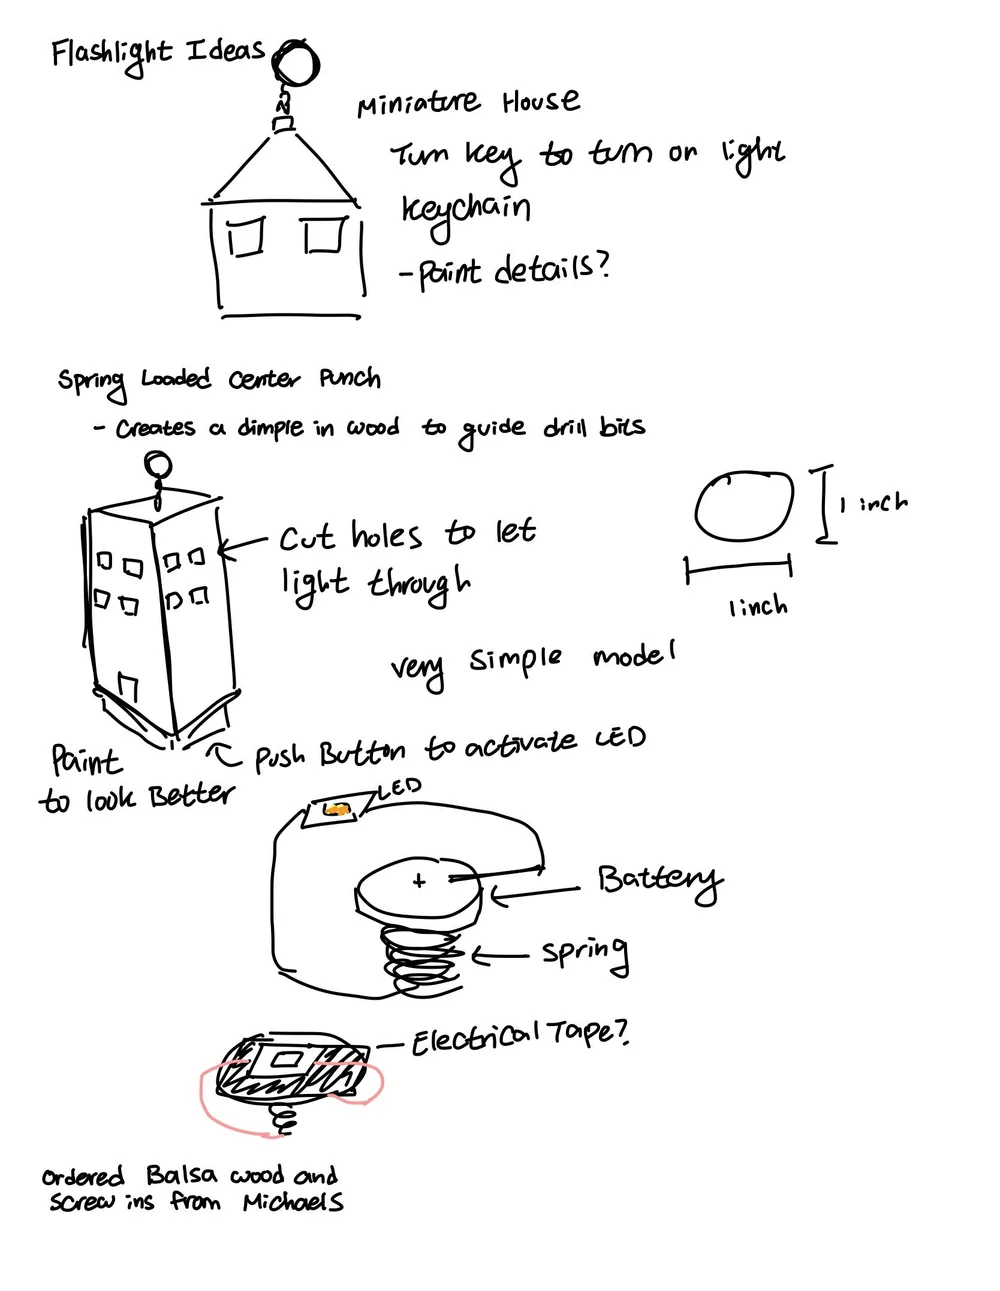 Flashlight Ideas
Miniature House
Turn key to turn on light
keychain
- Paint details?
Spring Loaded Center Punch
- Creates a dimple in wood to guide drill bits
Cut holes to let
light through
1 inch
1 inch
very simple model
Push Button to activate LED
Paint
to look Better
LED
+
Battery
Spring
Electrical Tape?
Ordered Balsa wood and
screw ins from Michaels